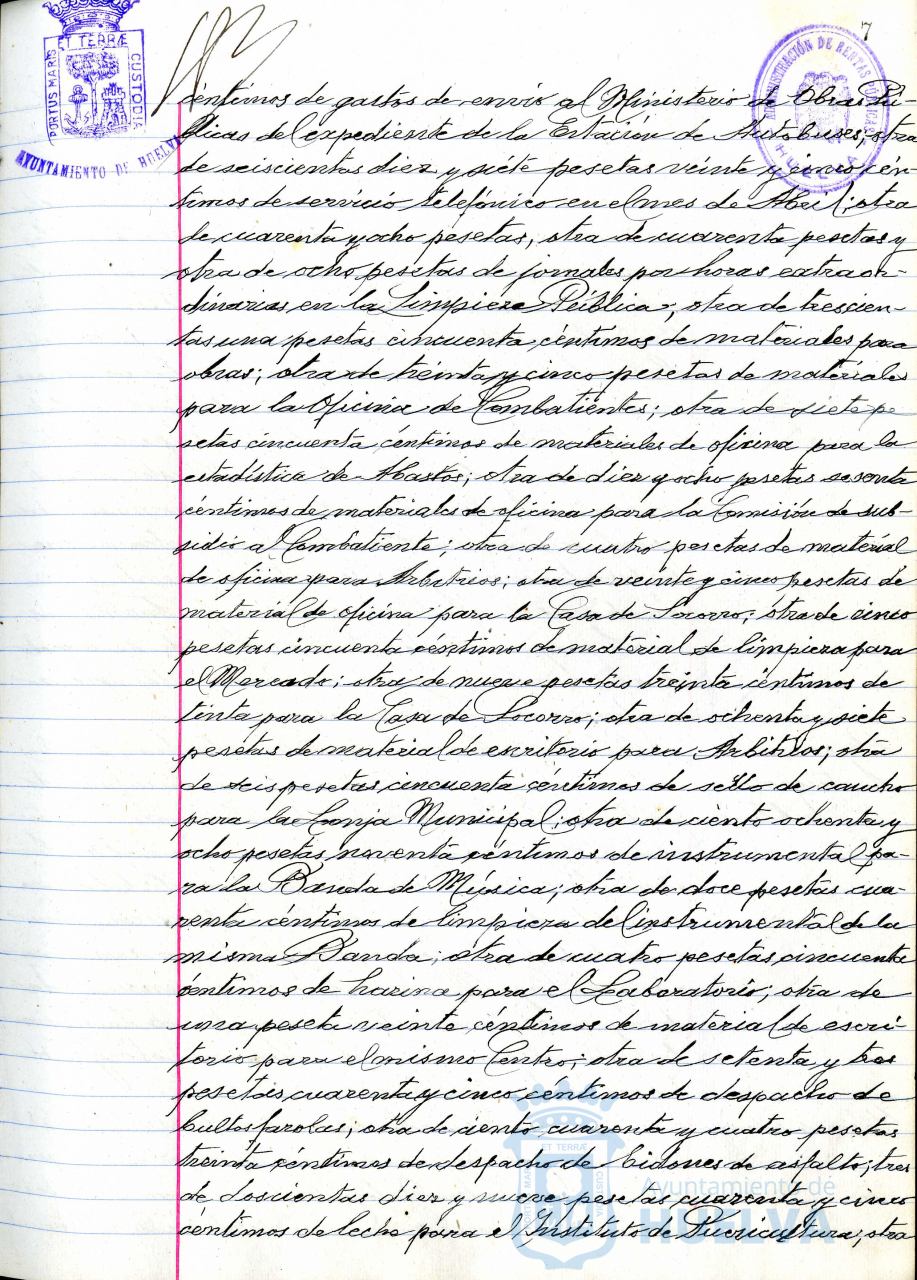 7
PORTUS MARIS ET TERRÆ CUSTODIA
AYUNTAMIENTO DE HUELVA
ADMINISTRACIÓN DE RENTAS PÚBLICAS
HUELVA
céntimos de gastos de envio al Ministerio de Obras Pú-
blicas del expediente de la Estación de Autobuses; otra
de seiscientas diez y siete pesetas veinte y cinco cén-
timos de servicio telefónico en el mes de Abril; otra
de cuarenta y ocho pesetas, otra de cuarenta pesetas y
otra de ocho pesetas de jornales por horas extraor-
dinarias en la Limpieza Pública; otra de trescien-
tas una pesetas cincuenta céntimos de materiales para
obras; otra de treinta y cinco pesetas de materiales
para la Oficina de Combatientes; otra de siete pe
setas cincuenta céntimos de materiales de oficina para la
estadística de Abastos; otra de diez y ocho pesetas sesenta
céntimos de materiales de oficina para la Comisión de sub-
sidio al Combatiente; otra de cuatro pesetas de material
de oficina para Arbitrios; otra de veinte y cinco pesetas de
material de oficina para la Casa de Socorro; otra de cinco
pesetas cincuenta céntimos de material de limpieza para
el Mercado; otra de nueve pesetas treinta céntimos de
tinta para la Casa de Socorro; otra de ochenta y siete
pesetas de material de escritorio para Arbitrios; otra
de seis pesetas cincuenta céntimos de sello de caucho
para la Lonja Municipal; otra de ciento ochenta y
ocho pesetas noventa céntimos de instrumental pa-
ra la Banda de Música; otra de doce pesetas cua-
renta céntimos de limpieza del instrumental de la
misma Banda; otra de cuatro pesetas cincuenta
céntimos de harina para el Laboratorio; otra de
una peseta veinte céntimos de material de escri-
torio para el mismo Centro; otra de setenta y tres
pesetas cuarenta y cinco céntimos de despacho de
bultos farolas; otra de ciento cuarenta y cuatro pesetas
treinta céntimos de despacho de bidones de asfalto; tres
de doscientas diez y nueve pesetas cuarenta y cinco
céntimos de leche para el Instituto de Puericultura; otra
ET TERRÆ
Ayuntamiento de
HUELVA